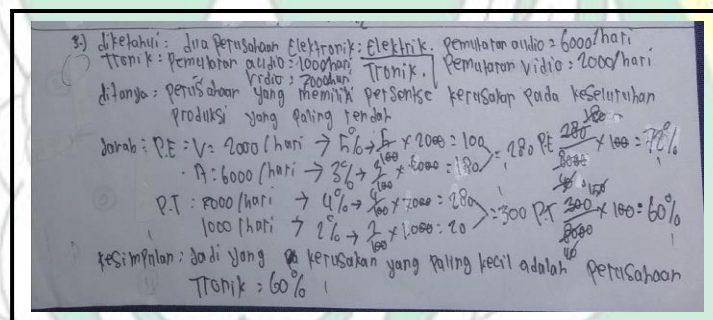 3.) diketahui : dua perusahaan Elektronik : Elektrik. pemutaran audio = 6000/hari
Tronik : pemutaran audio : 1000/hari Tronik. pemutaran vidio = 2000/hari
vidio : 7000/hari
ditanya : perusahaan yang memilik persentse kerusakan pada keseluruhan
produksi yang paling rendah
Jawab : P.E : V = 2000/hari → 5% → 5/100 × 2000 = 100
A : 6000/hari → 3% → 3/100 × 6000 = 180 = 280 P.E 280/8000 × 100 = 72%
P.T : 8000/hari → 4% → 4/100 × 7.000 = 280
1000/hari → 2% → 2/100 × 1.000 = 20 = 300 P.T 300/8000 × 100 = 60%
kesimpulan : Jadi yang kerusakan yang paling kecil adalah perusahaan
Tronik = 60%